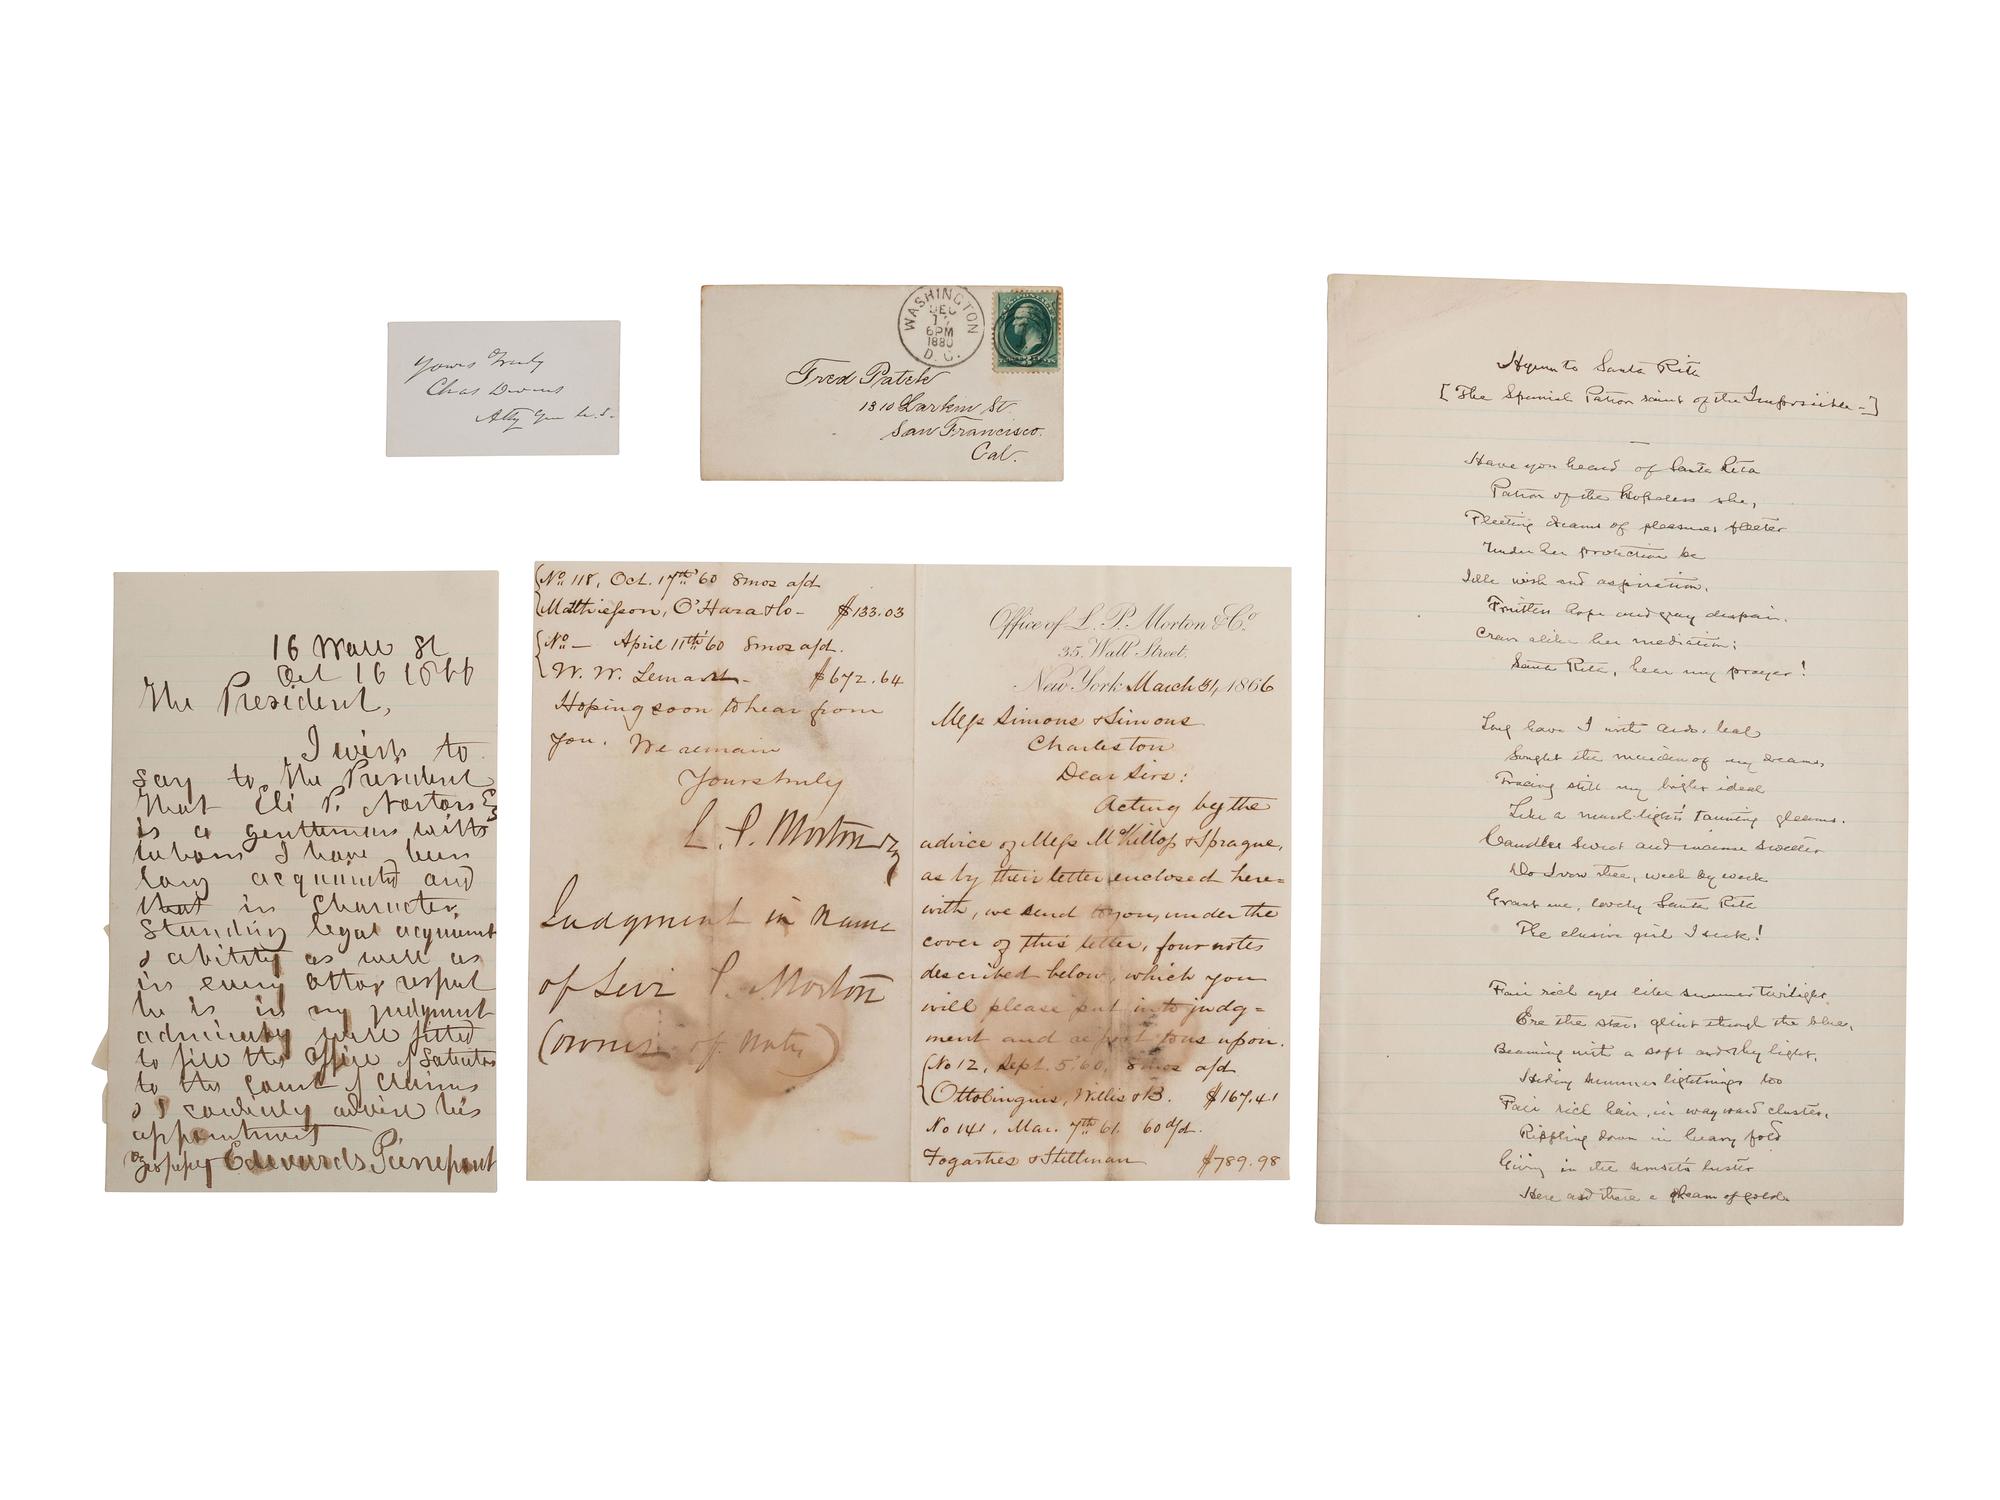 Yours Truly
Chas Devens
Atty Gen U.S.
WASHINGTON
DEC
17
6PM
1880
D.C.
Fred Patch
1310 Larkin St.
San Francisco.
Cal.
16 Wall St
Oct 16 1866
The President,
I wish to
say to the President
that Eli P. Norton Esq
is a gentleman with
whom I have been
long acquainted and
that in character,
standing legal acquirement
& ability as well as
in every other respect
he is in my judgment
admirably well fitted
to fill the office of Solicitor
to the Court of Claims
& I cordially advise his
appointment
Edwards Pierrepont
No 118, Oct. 17th '60 8mos a/d
Matthiesson, O'Hara & Co - $133.03
No — April 11th 60 8mos a/d.
W. W. - $672.64
Hoping soon to hear from
you. We remain
Yours truly
L. P. Morton
Judgment in name
of Levi P. Morton
(owner of notes)
Office of L. P. Morton & Co.
35, Wall Street,
New York March 31, 1866
Mess Simons & Simons
Charleston
Dear Sirs:
Acting by the
advice of Mess McKillop & Sprague,
as by their letter enclosed here=
with, we send to you, under the
cover of this letter, four notes
described below, which you
will please put into judg=
ment and report to us upon.
(No 12, Sept. 5, '60, 8mos a/d
Ottolinguis, Willis & B. $167.41
No 141, Mar. 7th 61. 60 d/d.
Fogarties & Stillman $789.98
Hymn to Santa Rita
[The Spanish Patron saint of the Impossible-]
Have you heard of Santa Rita
Patron of the hopeless she,
Fleeting dreams of pleasures fleeter
Under her protection be
Idle wish and aspiration,
Fruitless hope and gray despair.
Crave alike her mediation;
Santa Rita, hear my prayer!
Long have I with ardor, leal
Sought the maiden of my dreams,
Tracing still my bright ideal
Like a marsh-light's taunting gleams.
Candles sweet and incense sweeter
Do I vow thee, week by week
Grant me, lovely Santa Rita
The elusive girl I seek!
Fair rich eyes like summer twilight,
Ere the stars glint through the blue,
Beaming with a soft and shy light,
Hiding summer lightnings too
Fair rich hair, in wayward cluster,
Rippling down in heavy fold
Giving in the sunset's luster
Here and there a gleam of gold.